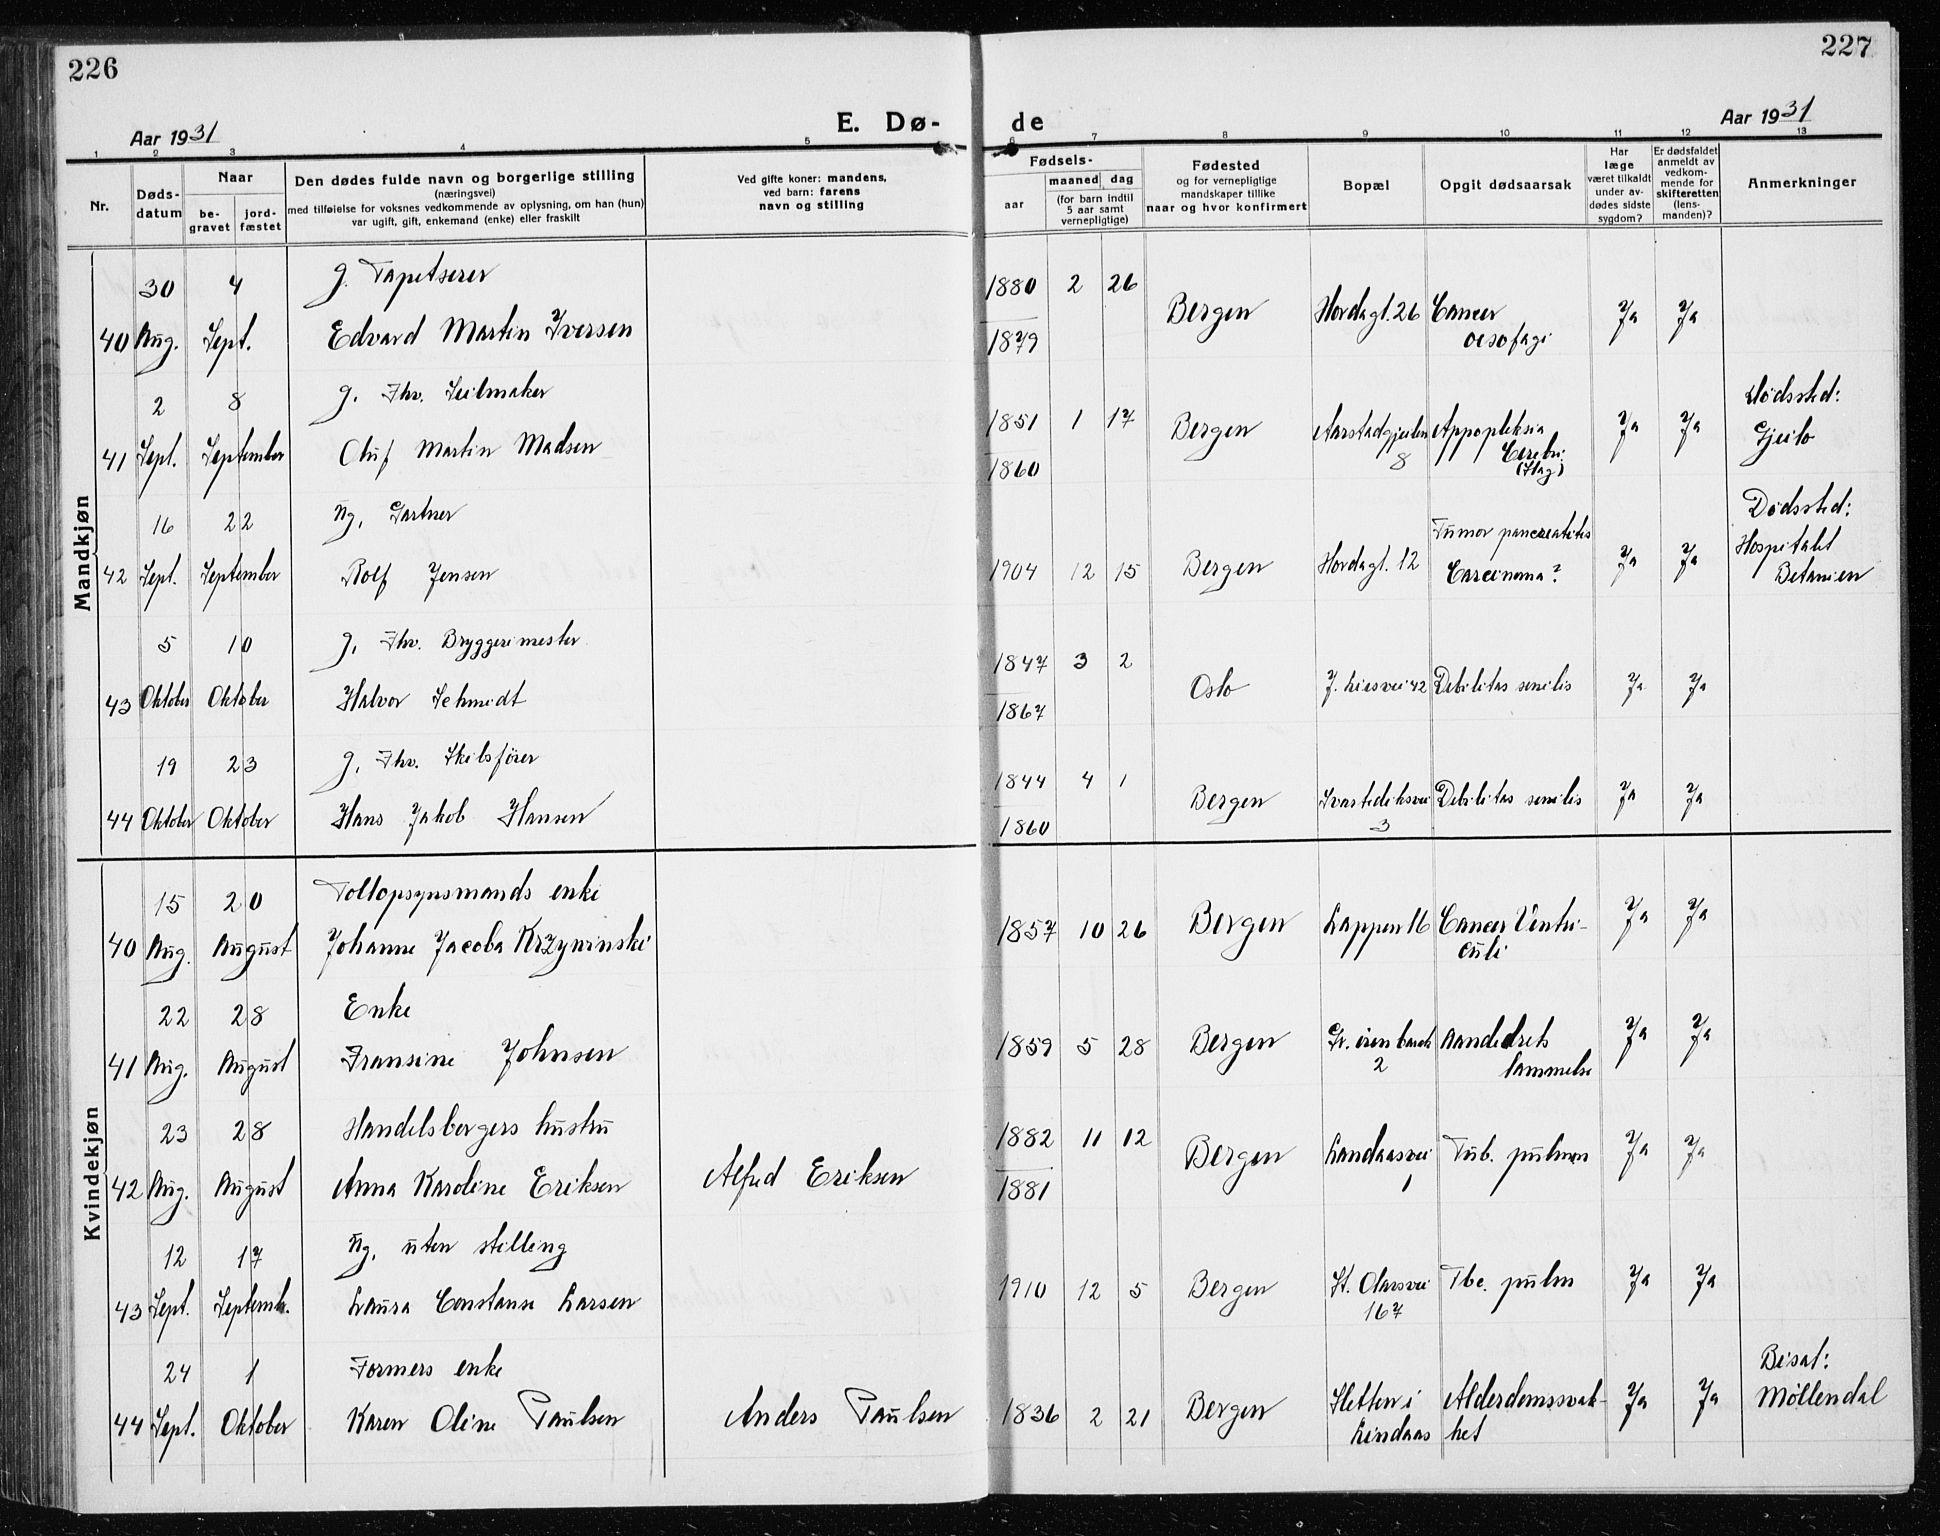 226
227
Aar 1931
E. Dø-
de
Aar 1931
1 2 3 4 5 6 7 8 9 10 11 12 13
Nr.
Døds-
datum
Naar
be-
gravet
jord-
fæstet
Den dødes fulde navn og borgerlige stilling
(næringsvei)
med tilføielse for voksnes vedkommende av oplysning, om han (hun)
var ugift, gift, enkemand (enke) eller fraskilt
Ved gifte koner: mandens,
ved barn: farens
navn og stilling
Fødsels-
aar
maaned dag
(for barn indtil
5 aar samt
vernepligtige)
Fødested
og for vernepligtige
mandskaper tillike
naar og hvor konfirmert
Bopæl
Opgit dødsaarsak
Har
læge
været tilkaldt
under av-
dødes sidste
sygdom?
Er dødsfaldet
anmeldt av
vedkom-
mende for
skifteretten
(lens-
manden)?
Anmerkninger
Mandkjøn
30 4 g. Tapetserer 1880 2 26
40 Aug. Sept. Edvard Martin Iversen 1879 Bergen Hordagt. 26 Cancer
oesofagi Ja Ja
2 8 g. Fhv. Seilmaker 1851 1 17 Dødssted:
41 Sept. September Oluf Martin Madsen 1860 Bergen Aarstadgjeilen
8 Appopleksia
Cerebri
(Slag) Ja Ja Gjeilo
16 22 ug. Gartner Tumor pancreatitis Dødssted:
42 Sept. September Rolf Jensen 1904 12 15 Bergen Hordagt. 12 Carcinoma? Ja Ja Hospitalet
Betanien
5 10 g. Fhv. Bryggerimester 1847 3 2
43 Oktober Oktober Halvor Schmidt 1867 Oslo J. Liesvei 42 Debilitas senilis Ja Ja
19 23 g. Fhv. Skibsfører 1844 4 1
44 Oktober Oktober Hans Jakob Hansen 1860 Bergen Svartediksvei
3 Debilitas senilis Ja Ja
Kvindekjøn
15 20 Toldopsynsmands enke
40 Aug. August Johanne Jacoba Krzywinski 1857 10 26 Bergen Lappen 16 Cancer Ventri-
culi Ja Ja
22 28 Enke
41 Aug. August Fransine Johnsen 1859 5 28 Bergen 2 Aandedrets
lammelse Ja Ja
23 28 Handelsborgers hustru 1882 11 12
42 Aug. August Anna Karoline Eriksen Alfred Eriksen 1881 Bergen Landaasvei
1 Tub. pulmon Ja Ja
12 17 ug. uten stilling
43 Sept. Septemb. Laura Constanse Larsen 1910 12 5 Bergen St. Olavsvei
167 Tbc. pulm Ja Ja
24 1 Formers enke Bisat:
44 Sept. Oktober Karen Oline Paulsen Anders Paulsen 1836 2 21 Bergen Sletten i
Lindaas Alderdomssvak-
het Ja Ja Møllendal